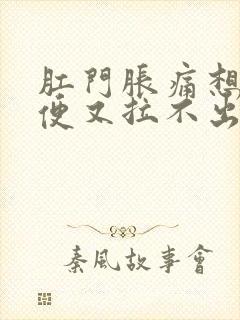 肛門脹痛想
便又拉不出
秦風故事會